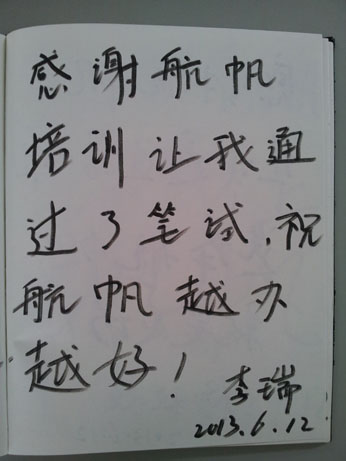 感谢航帆
培训让我通
过了笔试，祝
航帆越办
越好！
李瑞
2013.6.12